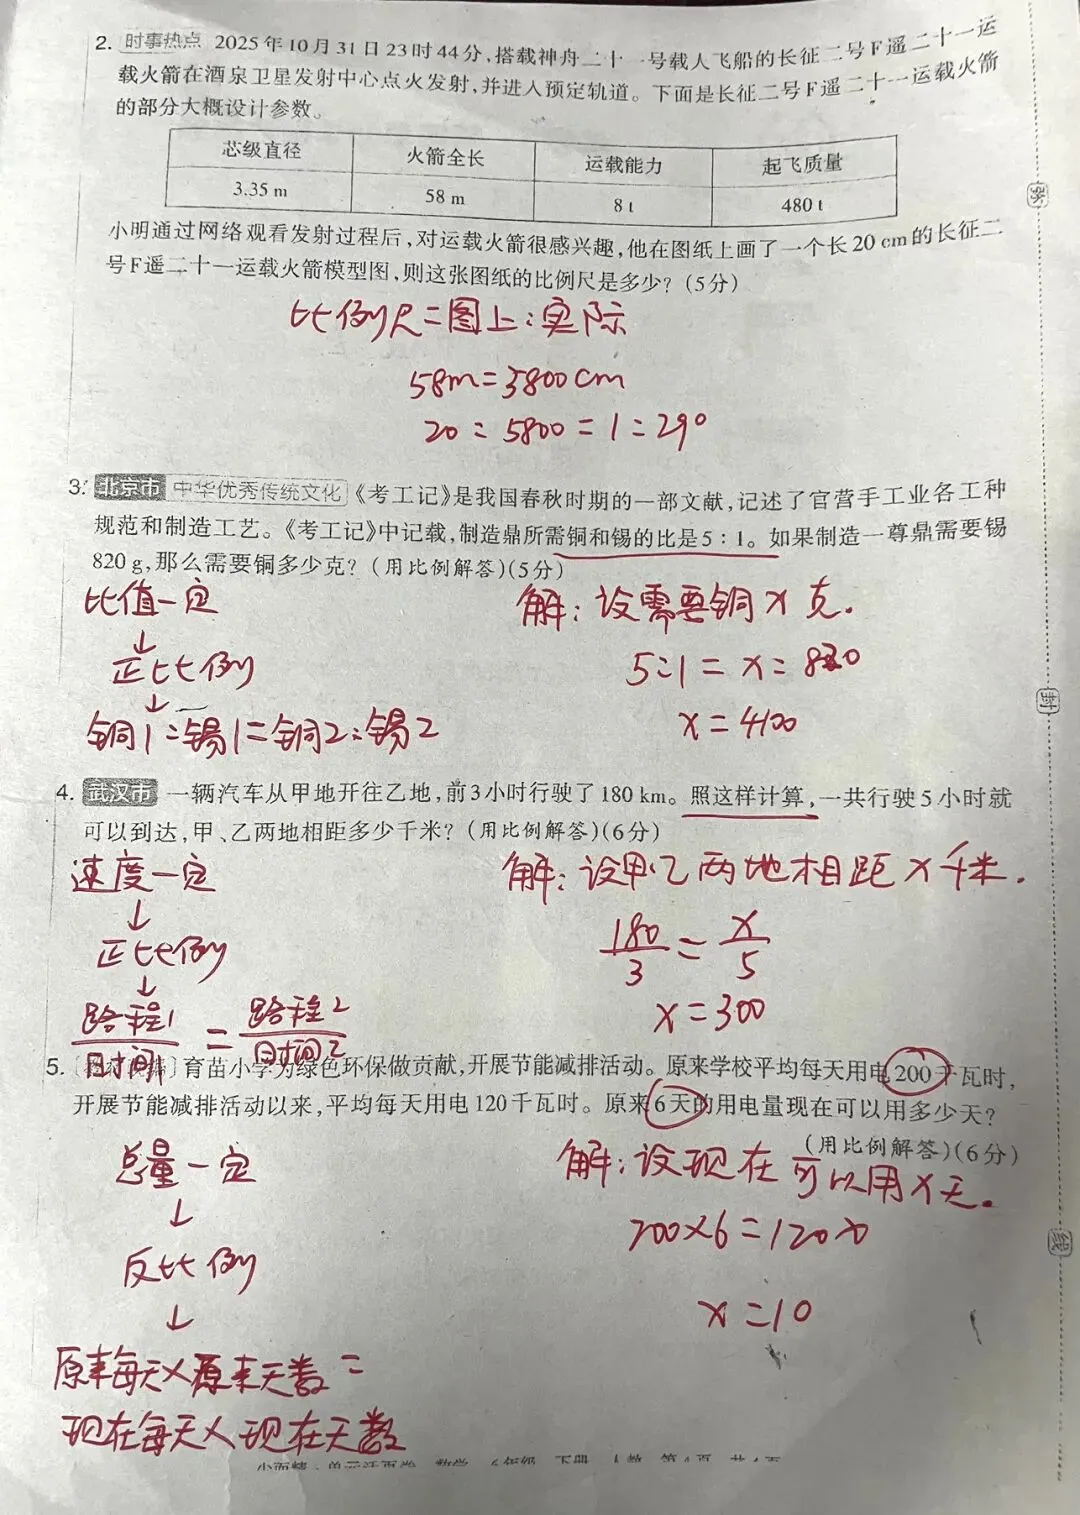 2. 时事热点 2025年10月31日23时44分,搭载神舟二十一号载人飞船的长征二号F遥二十一运
载火箭在酒泉卫星发射中心点火发射,并进入预定轨道。下面是长征二号F遥二十一运载火箭
的部分大概设计参数。
芯级直径 火箭全长 运载能力 起飞质量
3.35 m 58 m 8 t 480 t
小明通过网络观看发射过程后,对运载火箭很感兴趣,他在图纸上画了一个长20 cm的长征二
号F遥二十一运载火箭模型图,则这张图纸的比例尺是多少?(5分)
比例尺=图上:实际
58m=5800cm
20:5800=1:290
3. 北京市 中华优秀传统文化 《考工记》是我国春秋时期的一部文献,记述了官营手工业各工种
规范和制造工艺。《考工记》中记载,制造鼎所需铜和锡的比是5:1。如果制造一尊鼎需要锡
820 g,那么需要铜多少克?(用比例解答)(5分)
比值一定
↓
正比例
↓
铜1:锡1=铜2:锡2
解:设需要铜x克.
5:1=x:820
x=4100
4. 武汉市 一辆汽车从甲地开往乙地,前3小时行驶了180 km。照这样计算,一共行驶5小时就
可以到达,甲、乙两地相距多少千米?(用比例解答)(6分)
速度一定
↓
正比例
↓
路程1/时间1=路程2/时间2
解:设甲乙两地相距x千米.
180/3=x/5
x=300
5. 育苗小学为绿色环保做贡献,开展节能减排活动。原来学校平均每天用电200千瓦时,
开展节能减排活动以来,平均每天用电120千瓦时。原来6天的用电量现在可以用多少天?
(用比例解答)(6分)
总量一定
↓
反比例
↓
原来每天×原来天数=
现在每天×现在天数
解:设现在可以用x天。
200×6=120x
x=10
单元活页卷 数学 6年级 下册 人教 第4页 共4页
考
封
线